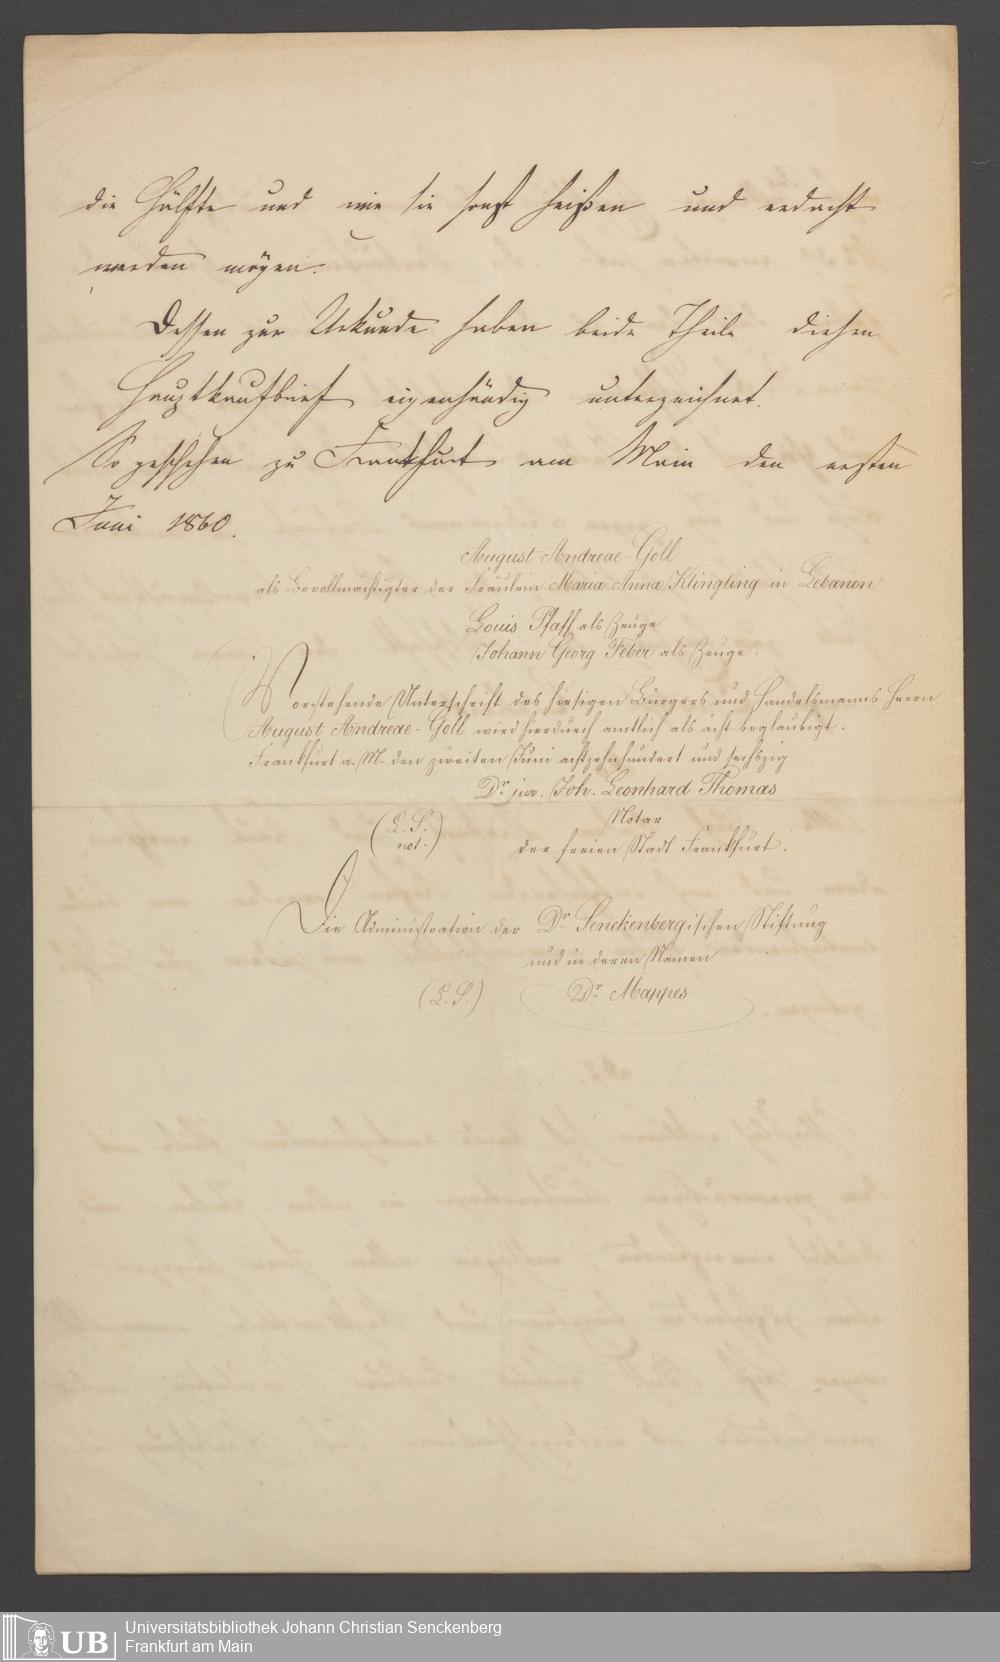 die Hälfte und wie sie sonst heißen und erdacht
werden mögen.
Dessen zur Urkunde haben beide Theile diesen
Hauptkaufbrief eigenhändig unterzeichnet.
So geschehen zu Frankfurt am Main den ersten
Juni 1860.
August Andreae-Goll
als Bevollmächtigter der Fräulein Maria Anna Klingling in Lebanon
Louis Pfaff als Zeuge
Johann Georg Feber als Zeuge.
Vorstehende Unterschrift des hiesigen Bürgers und Handelsmanns Herrn
August Andreae-Goll wird hierdurch amtlich als ächt beglaubigt.
Frankfurt a. M. den zweiten Juni achtzehnhundert und sechszig
Dr. jur. Joh. Leonhard Thomas
(L. S. not.)
Notar
der freien Stadt Frankfurt.
Die Administration der Dr. Senckenbergischen Stiftung
und in deren Namen
(L. S.) Dr. Mappes
UB
Universitätsbibliothek Johann Christian Senckenberg
Frankfurt am Main